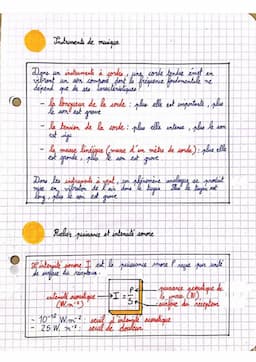 Instruments de musique
Dans un instrument à cordes, une corde tendue émet en
vibrant un son composé dont la fréquence fondamentale ne
dépend que de ses caractéristiques :
- la longueur de la corde : plus elle est importante, plus
le son est grave
- la tension de la corde : plus elle intense, plus le son
est aigu
- la masse linéique (masse d'un mètre de corde) : plus elle
est grande, plus le son est grave
Dans les instruments à vent, un phénomène analogue se produit
mise en vibration de l'air dans le tuyau. Plus le tuyau est
long, plus le son est grave
Relier puissance et intensité sonore
L'intensité sonore I est la puissance sonore P reçue par unité
de surface du récepteur.
intensité acoustique
(W.m⁻²)
I = P
S
puissance acoustique de
la source (W)
surface du récepteur
- 10⁻¹² W.m⁻² : seuil d'intensité acoustique
- 25 W.m⁻² : seuil de douleur